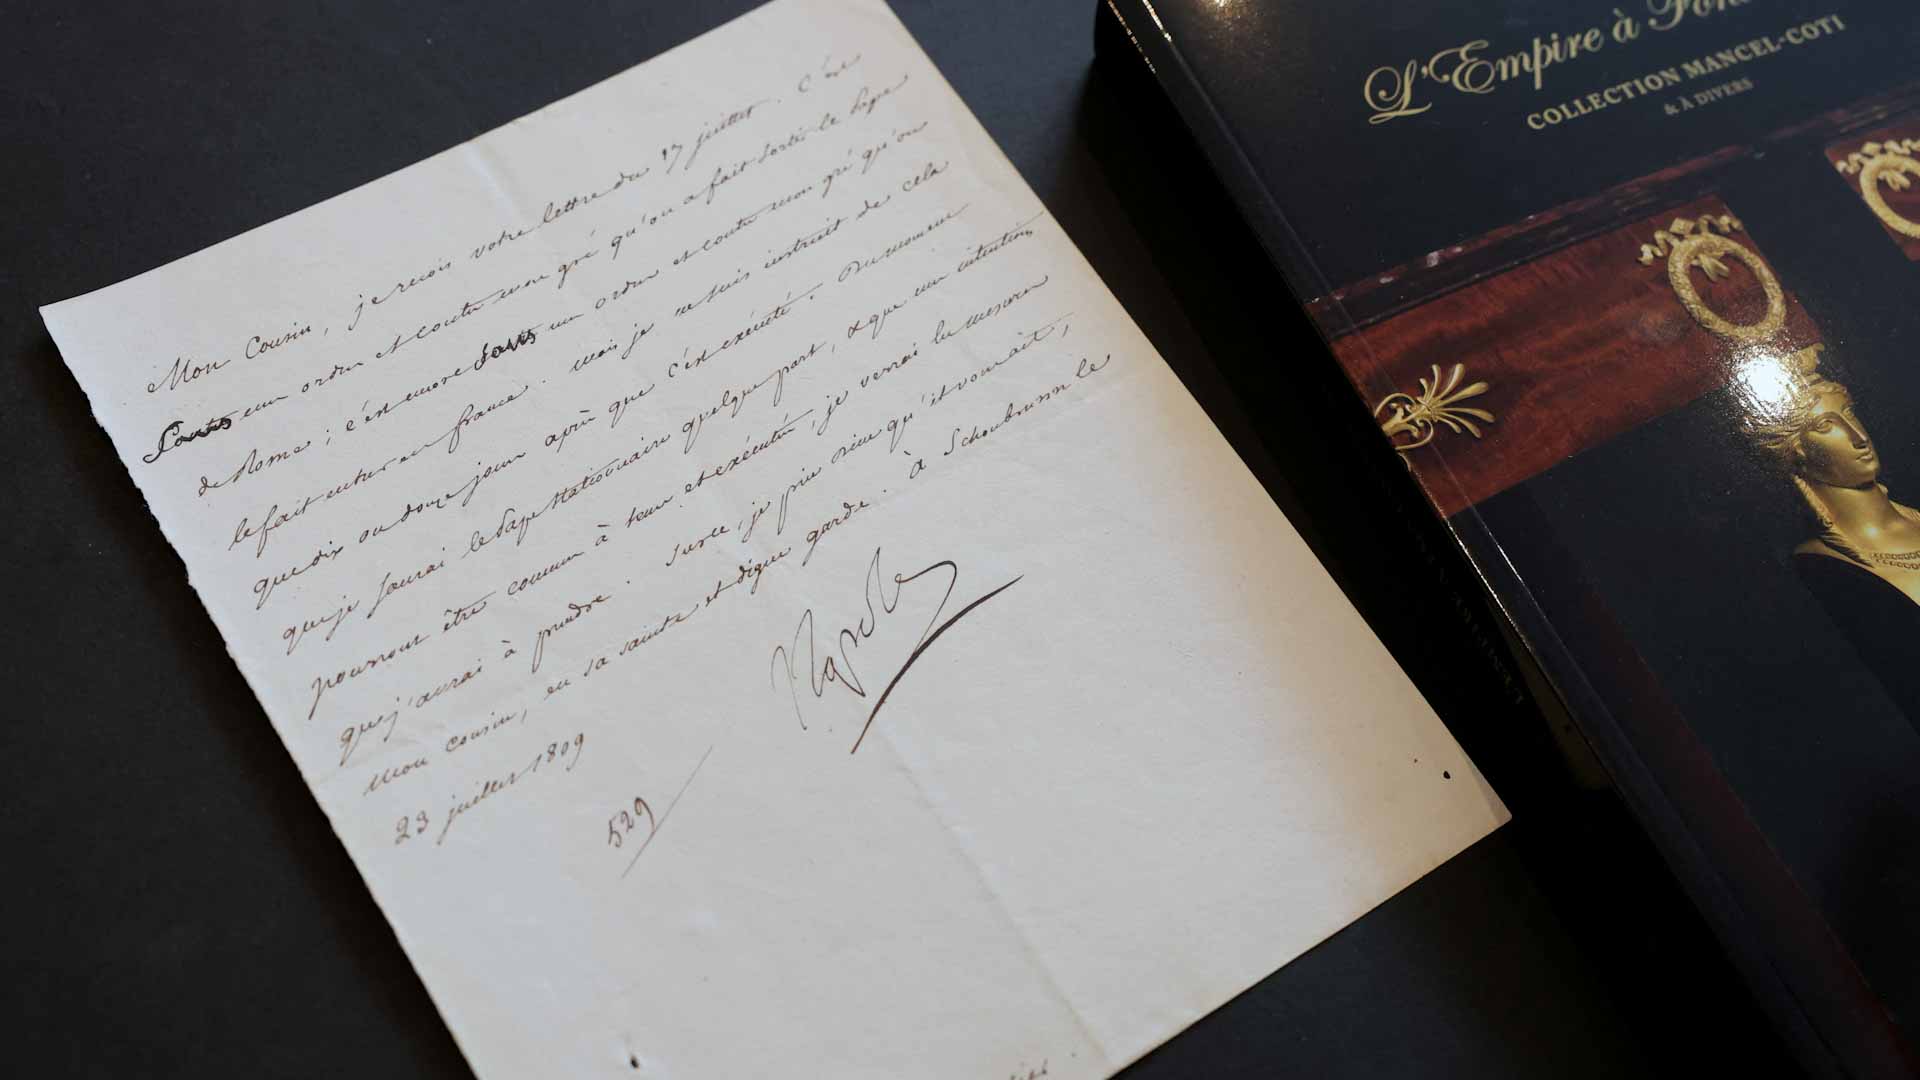 Mon Cousin, je reçois votre lettre du 17 juillet. C'est
Sans mon ordre et contre mon gré qu'on a fait sortir le Pape
de Rome ; c'est encore Sans mon ordre et contre mon gré qu'on
le fait entrer en france. mais je ne suis instruit de cela
que dix ou douze jours après que c'est exécuté. Du moment
que je Saurai le Pape Stationnaire quelque part, & que mes intentions
pourront être connues à tems et exécutées, je verrai les mesures
que j'aurai à prendre. Surce, je prie Dieu qu'il vous ait,
mon cousin, en sa sainte et digne garde. à Schoubrunn le
23 juillet 1809
Napole
529
L'Empire à
COLLECTION MANCEL-COTI
& À DIVERS